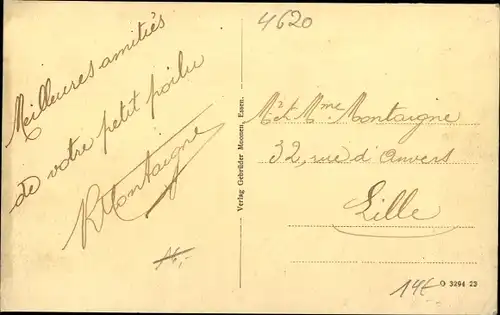 4620
Meilleures amitiés
de votre petit poilu
RMontaigne
Verlag Gebrüder Moonen, Essen.
Mr et Mme Montaigne
32, rue d'Anvers
Lille
16,-
14€
O 3294 23